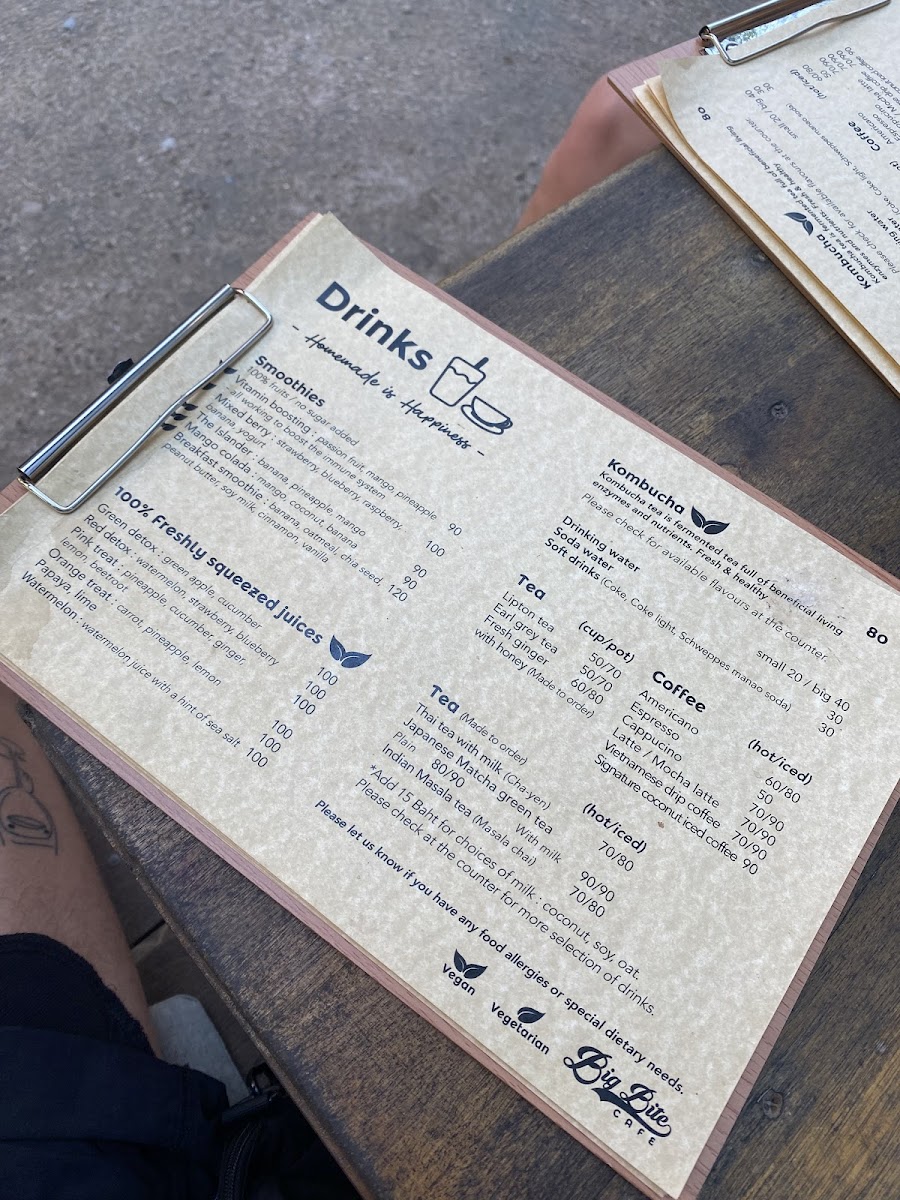 Drinks
- Homemade is Happiness -
Smoothies
100% fruits / no sugar added
Vitamin boosting : passion fruit, mango, pineapple 90
- all working to boost the immune system
Mixed berry : strawberry, blueberry, raspberry, 100
banana, yogurt
The Islander : banana, pineapple, mango 90
Mango colada : mango, coconut, banana 90
Breakfast smoothie : banana, oatmeal, chia seed, 120
peanut butter, soy milk, cinnamon, vanilla
100% Freshly squeezed juices
Green detox : green apple, cucumber 100
Red detox : watermelon, strawberry, blueberry 100
Pink treat : pineapple, cucumber, ginger, 100
lemon, beetroot
Orange treat : carrot, pineapple, lemon 100
Papaya, lime 100
Watermelon : watermelon juice with a hint of sea salt 100
Kombucha
Kombucha tea is fermented tea full of beneficial living
enzymes and nutrients. Fresh & healthy 80
Please check for available flavours at the counter.
Drinking water small 20 / big 40
Soda water 30
Soft drinks (Coke, Coke light, Schweppes manao soda) 30
Tea (cup/pot)
Lipton tea 50/70
Earl grey tea 50/70
Fresh ginger 60/80
with honey (Made to order)
Coffee (hot/iced)
Americano 60/80
Espresso 50
Cappucino 70/90
Latte / Mocha latte 70/90
Vietnamese drip coffee 70/90
Signature coconut iced coffee 90
Tea (Made to order) (hot/iced)
Thai tea with milk (Cha-yen) 70/80
Japanese Matcha green tea
Plain 80/90 With milk 90/90
Indian Masala tea (Masala chai) 70/80
*Add 15 Baht for choices of milk : coconut, soy, oat.
Please check at the counter for more selection of drinks.
Please let us know if you have any food allergies or special dietary needs.
Vegan
Vegetarian
Big Bite
CAFE
Kombucha
Kombucha tea is fermented tea full of beneficial living
enzymes and nutrients. Fresh & healthy 80
Please check for available flavours at the counter.
small 20 / big 40
30
Coke, Coke light, Schweppes manao soda
Coffee (hot/iced)
Americano 60/80
50
70/90
Mocha latte 70/90
drip coffee
iced coffee 90